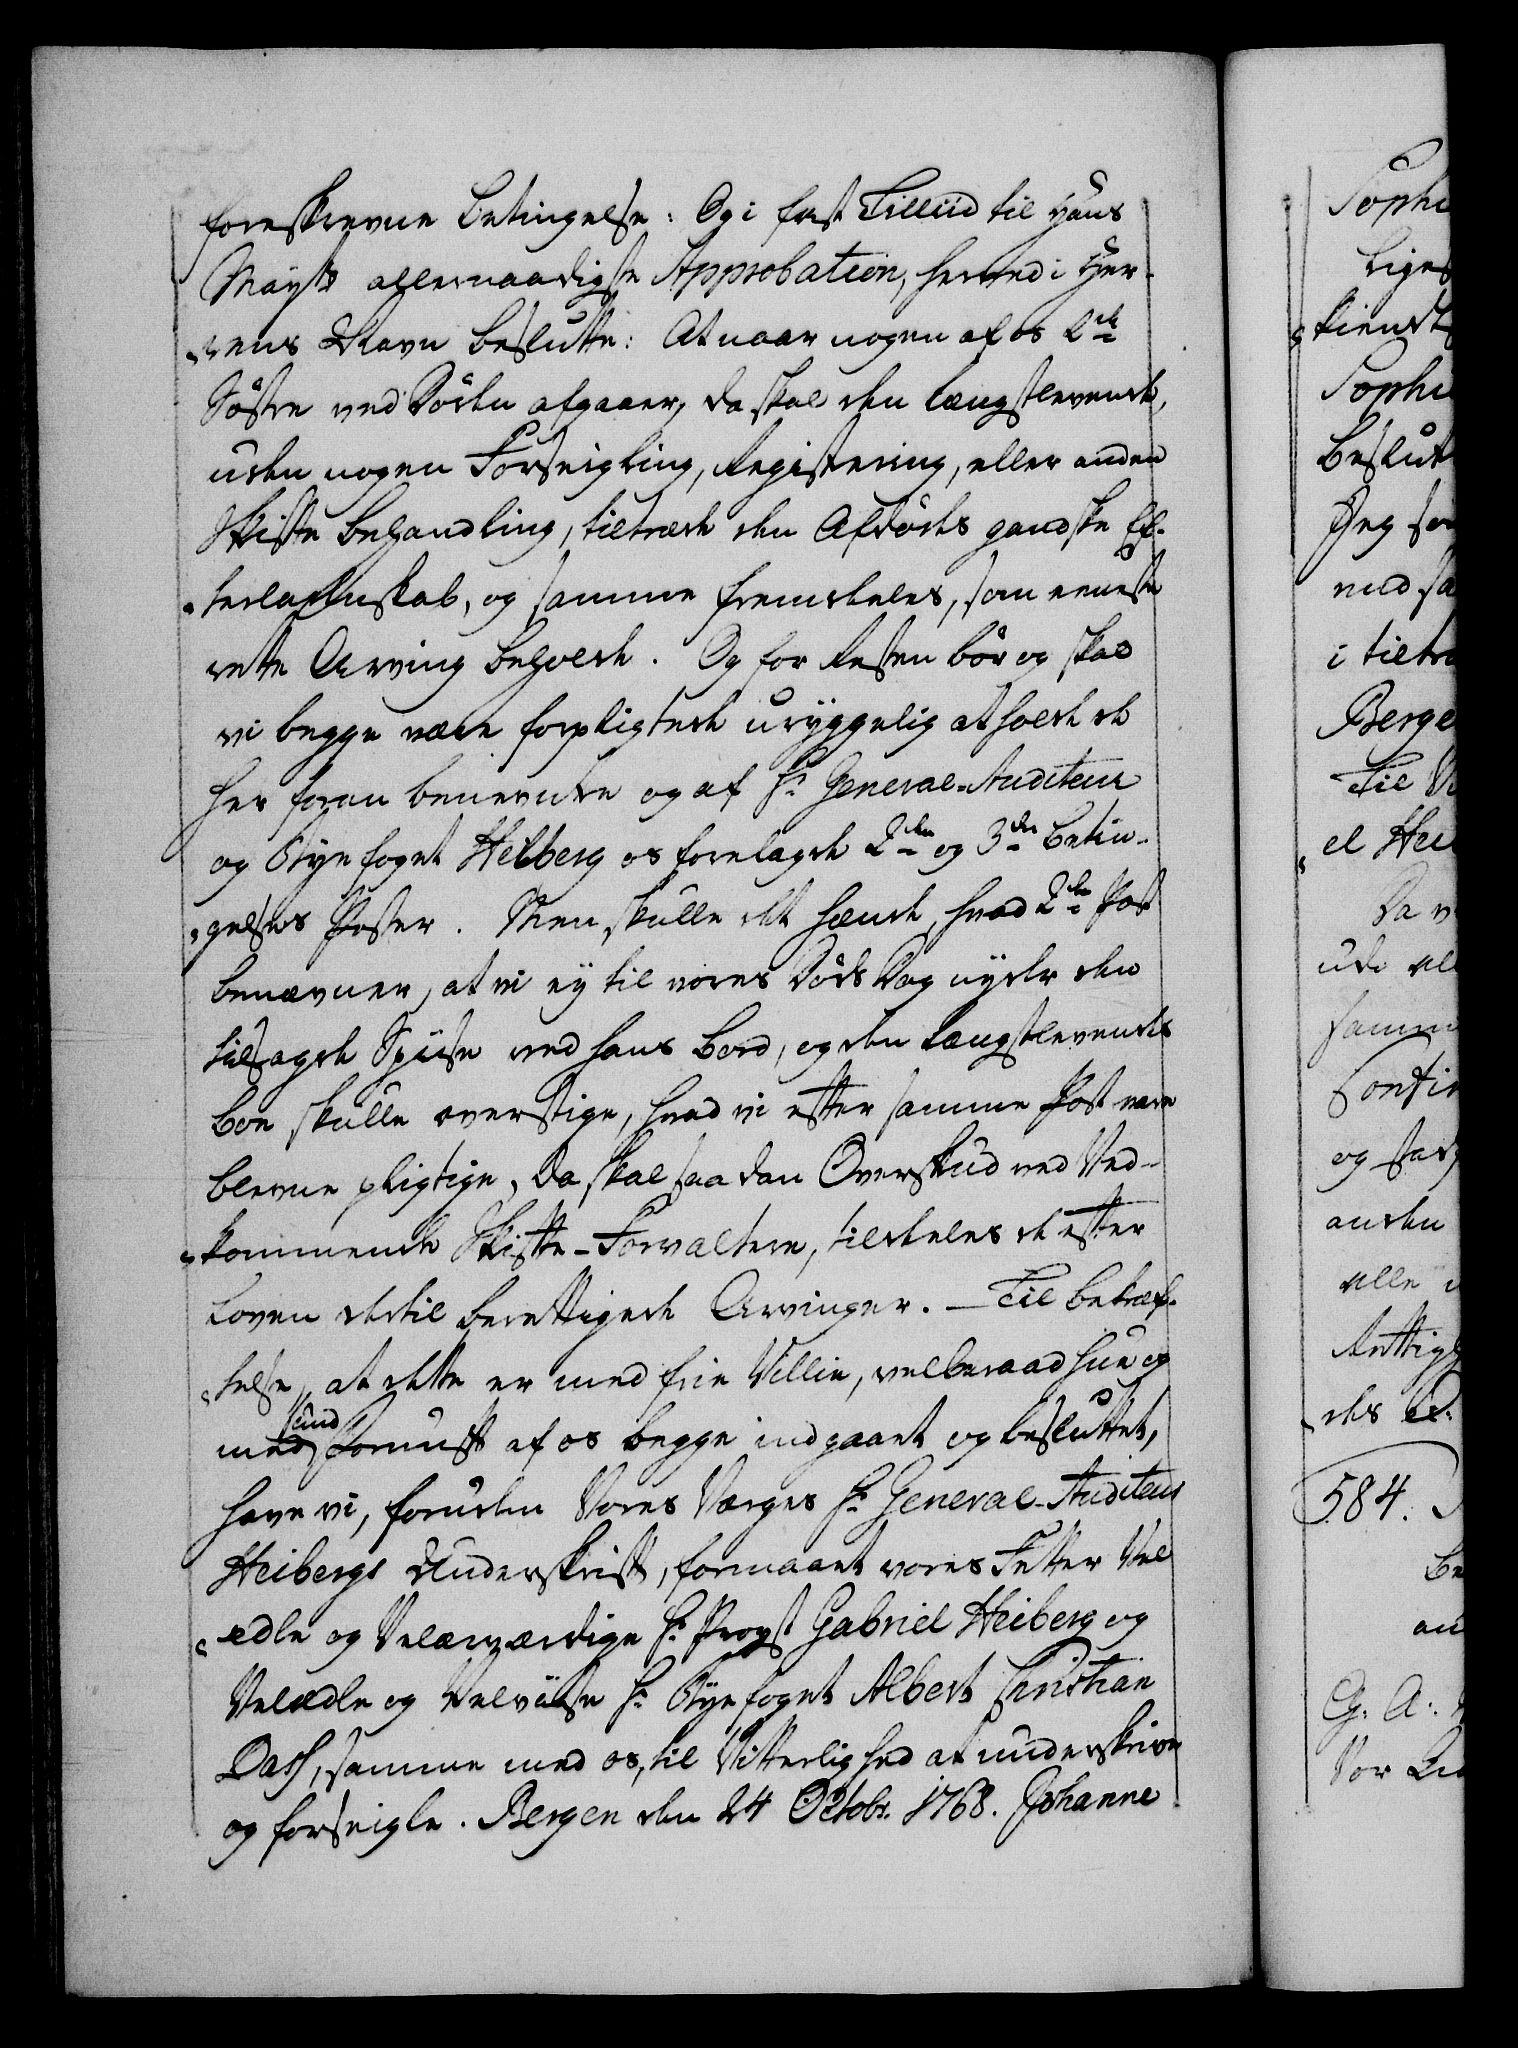 foreskrevne Betingelse: Og i fast Tilliid til Hans
Mayts allernaadigste Approbation, herved i Her-
„rens Navn beslutte: At naar nogen af os 2de
Söstre ved Döden afgaaer, da skal den længstlevende,
uden nogen Forseigling, Registering, eller anden
Skifte Behandling, tiltræde den Afdödes gandske Ef-
„terladenskab, og samme fremdeles, som eeneste
rette Arving beholde. Og for Resten bör og skal
vi begge være forpligtede uryggelig at holde de
her foran benevnte og af Hr. General-Auditeur
og Byefoget Heiberg os forelagde 2den og 3die Betin-
„gelses Poster. Men skulle det hænde, hvad 2den Post
benævner, at vi ey til vores Döds Dag nyder den
tilsagde Spiise ved hans Bord, og den længstlevendes
Boe skulle overstige, hvad vi efter samme Post være
blevne pligtige, da skal saadan Overskud ved Ved-
„kommende Skifte-Forvaltere, tildeles de efter
Loven dertil berettigede Arvinger. – Til Bekræf-
„telse, at dette er med frie Villie, velberaad Hue og
med sund Fornuft af os begge indgaaet og besluttet,
have vi, foruden Vores Værges Hr. General-Auditeur
Heibergs Underskrift, formaaet vores Fetter Vel
„edle og Velærværdige Hr. Provst Gabriel Heiberg og
Velædle og Velviise Hr. Byefoget Albert Christian
Dass, samme med os, til Vitterlighed at underskrive
og forseigle. Bergen den 24 Octobr. 1768. Johanne
Sophi
Liges
„kiendt
Sophi
Beslut
Jeg
med
i tiltr
Berge
Til
el Hei
Da
ude
samm
Confir
og
anden
alle
Rettig
des
584.
Be
an
G: A:
Vor